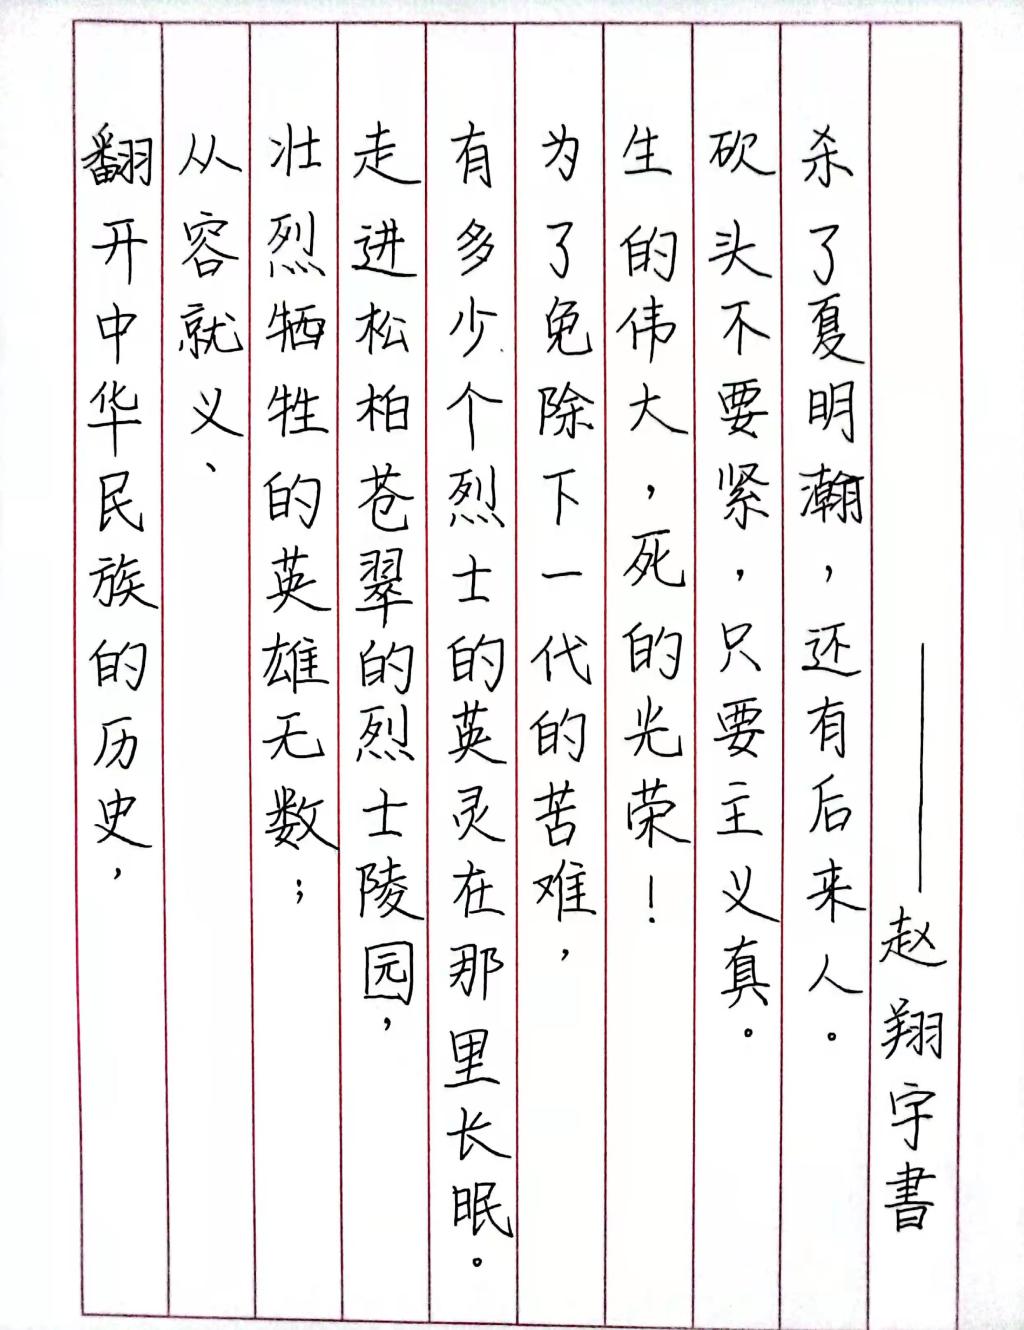 翻开中华民族的历史，
从容就义、
壮烈牺牲的英雄无数；
走进松柏苍翠的烈士陵园，
有多少个烈士的英灵在那里长眠。
为了免除下一代的苦难，
生的伟大，死的光荣！
砍头不要紧，只要主义真。
杀了夏明瀚，还有后来人。
——赵翔宇書